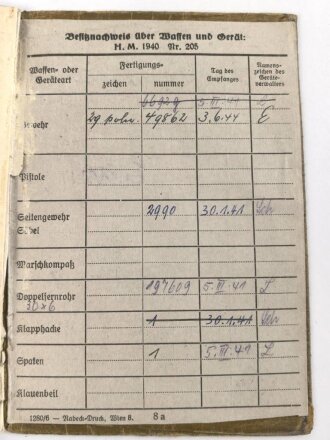 Besitznachweis über Waffen und Gerät:
H. M. 1940 Nr. 205
Waffen- oder Geräteart Fertigungs- zeichen nummer Tag des Empfanges Namenszeichen des Geräteverwalters
66929 5.III.41 L
Gewehr 29 poln. 49862 3.6.44 E
Pistole
Seitengewehr 2990 30.1.41 Sch
Säbel
Marschkompaß
Doppelfernrohr 197609 5.III.41 L
30x6
Klapphacke 1 30.1.41 Sch
Spaten 1 5.III.41 L
Klauenbeil
1280/6 — Nabeck-Druck, Wien 8. 8a